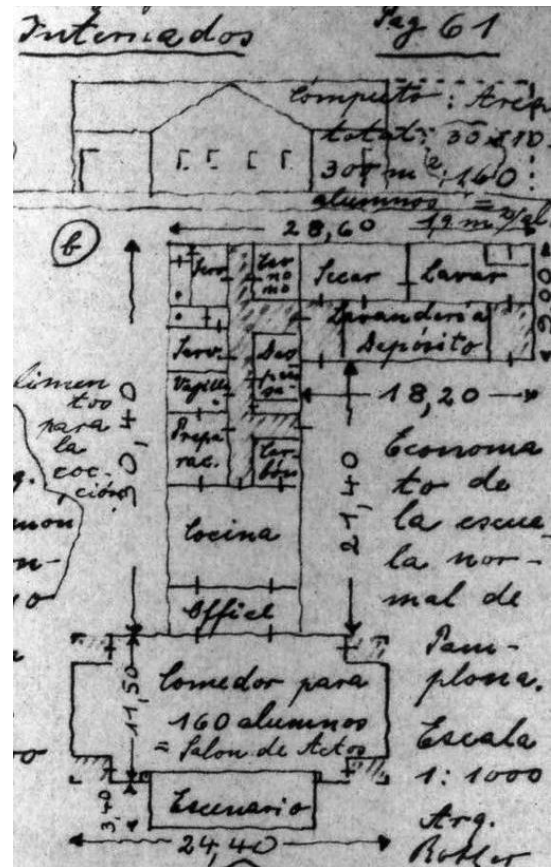 Internados Pag 61
Computo: Area
total: 30 x 10
300 m²: 160
alumnos =
1,9 m²/al.
b
28,60
Serv.
Secar Lavar
9,00
Lavandería
Depósito
Serv. Des
pensa
Vajilla
18,20
Prepa
rac. Car-
bón
30,40
21,40
limen
tos
para
la
coc-
ción
Cocina
Office
Economa
to de
la escue
la nor-
mal de
Pam-
plona.
Escala
1:1000
Arq.
11,50
Comedor para
160 alumnos
= Salon de Actos
Escenario
3,40
24,40